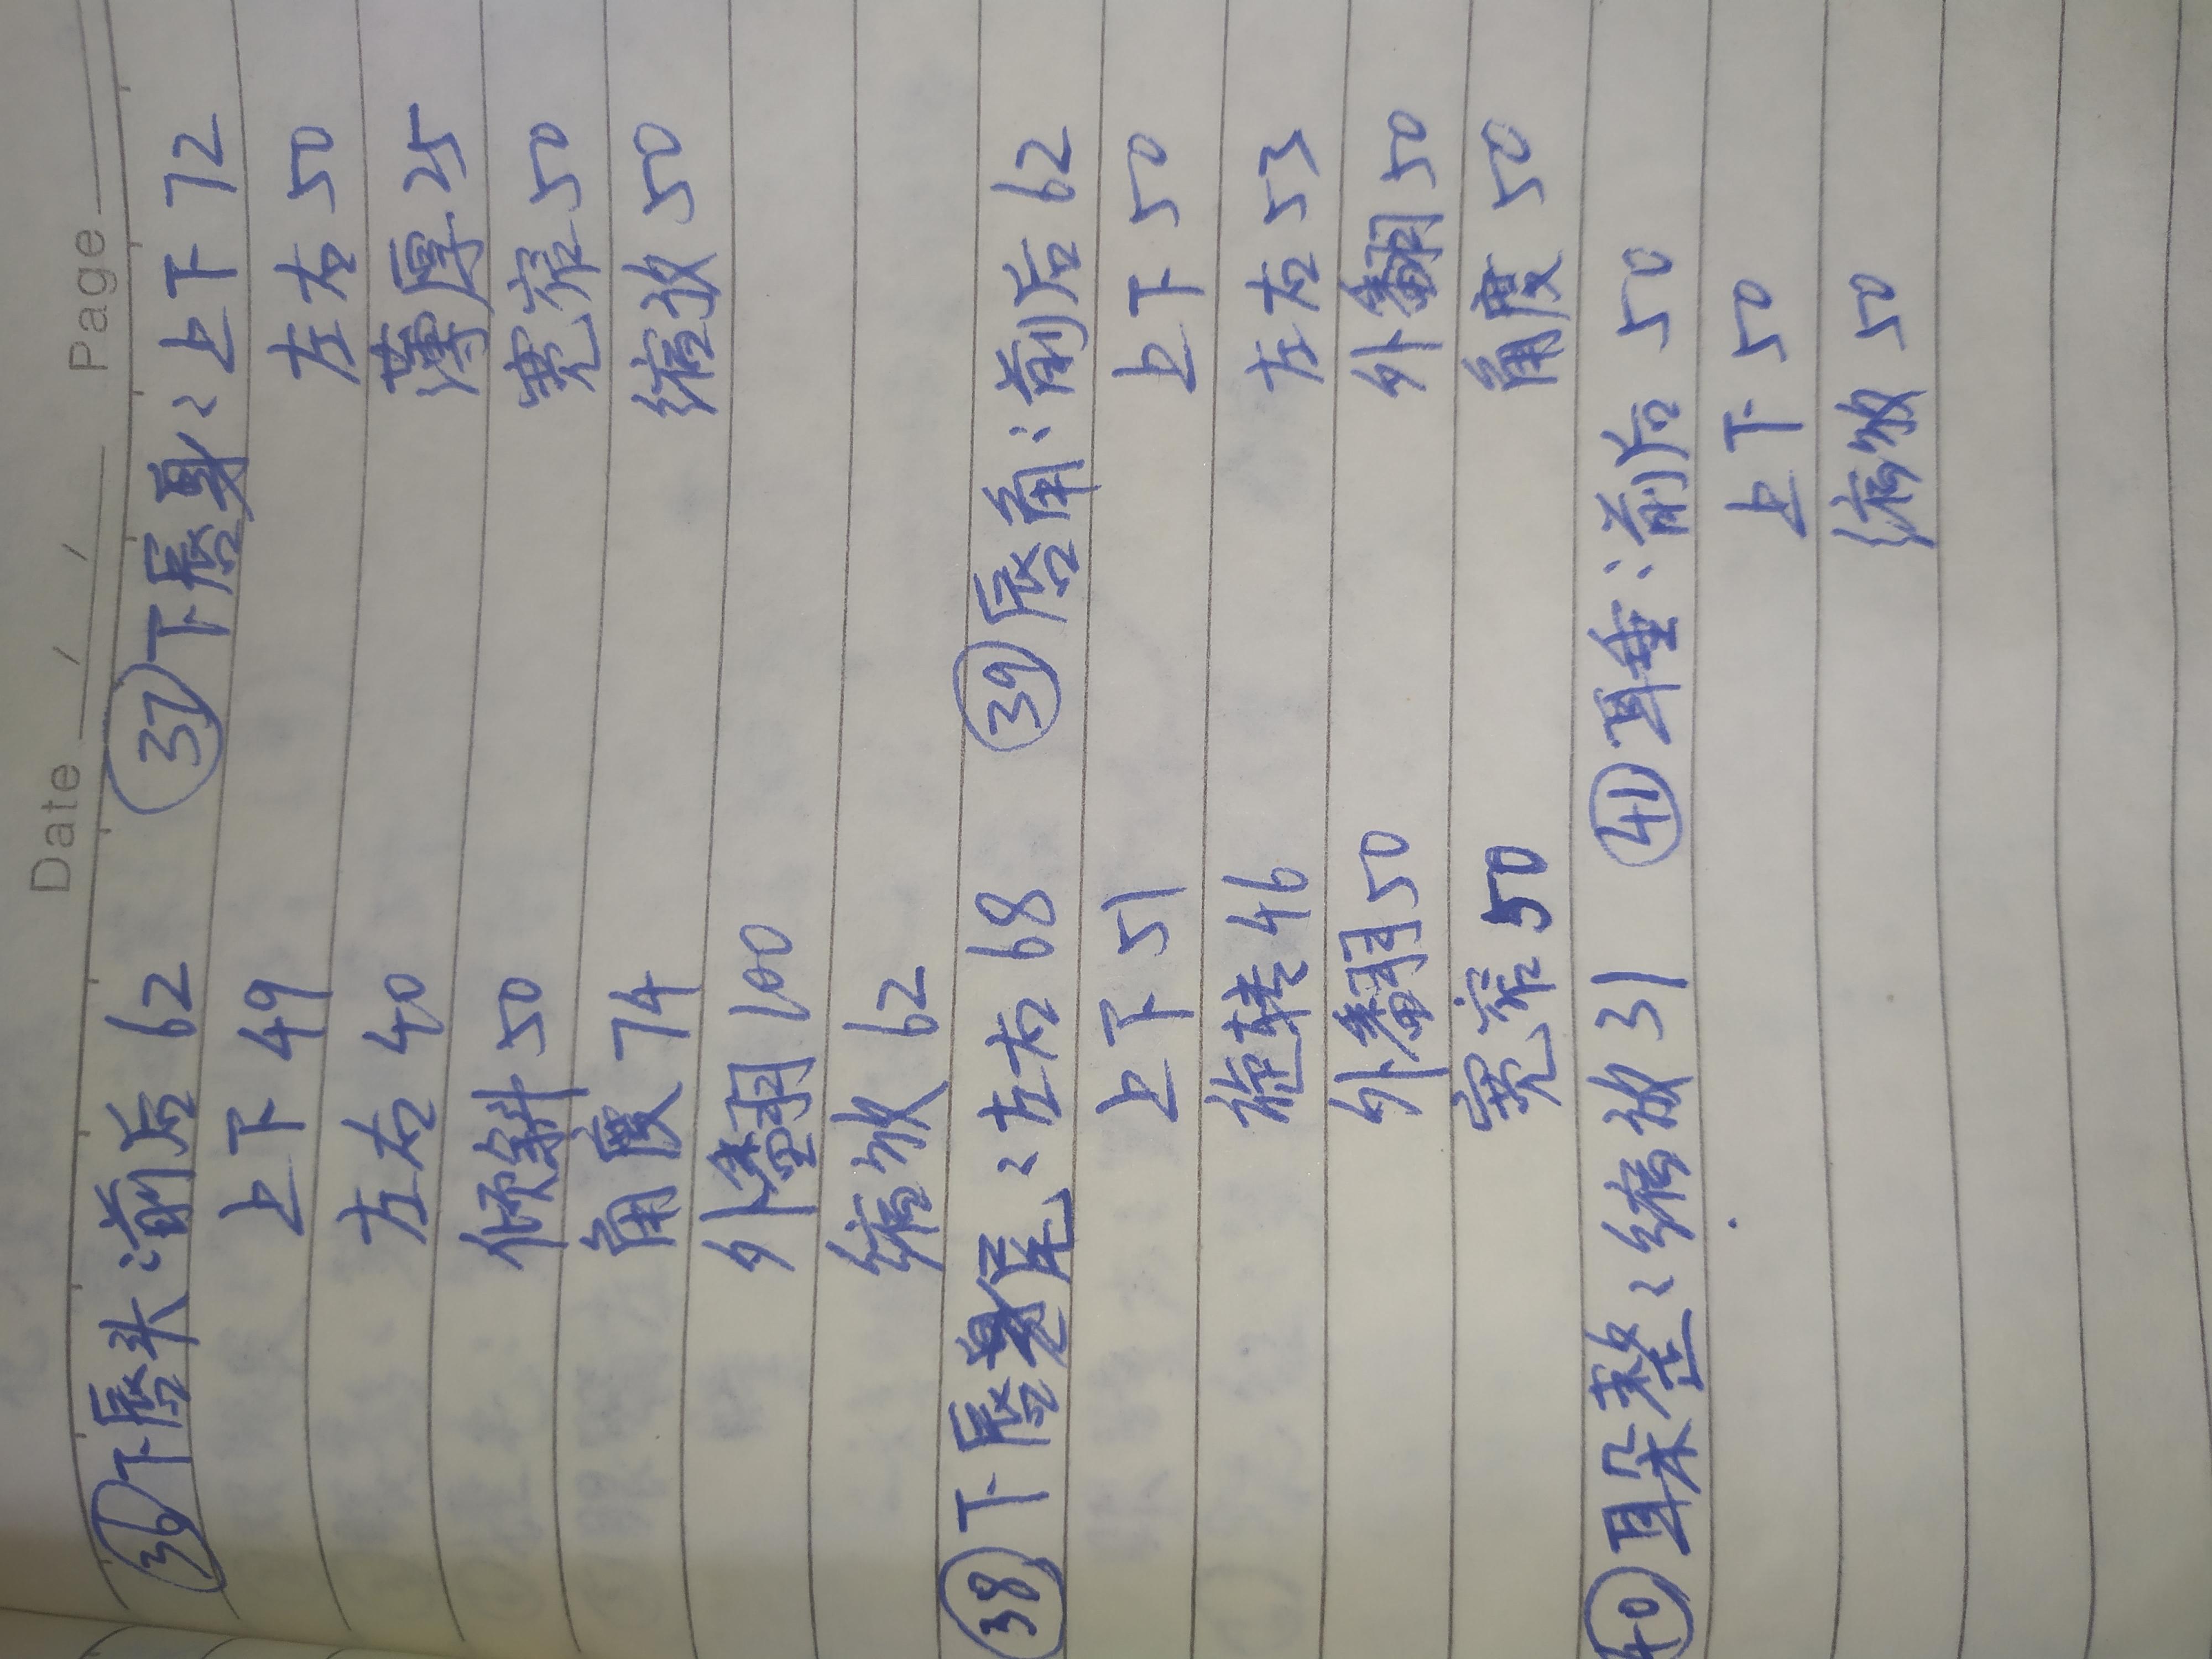 Date / / Page
㊱下唇头:前后 62 ㊲下唇身:上下 72
上下 49 左右 50
左右 40 薄厚 25
倾斜 50 宽窄 50
角度 74 缩放 50
外翻 100
缩放 62
㊳下唇尾:左右 68 ㊴唇角:前后 62
上下 51 上下 50
旋转 46 左右 53
外翻 50 外翻 50
宽窄 50 角度 50
㊵耳朵整:缩放 31 ㊶耳垂:前后 50
上下 50
缩放 50